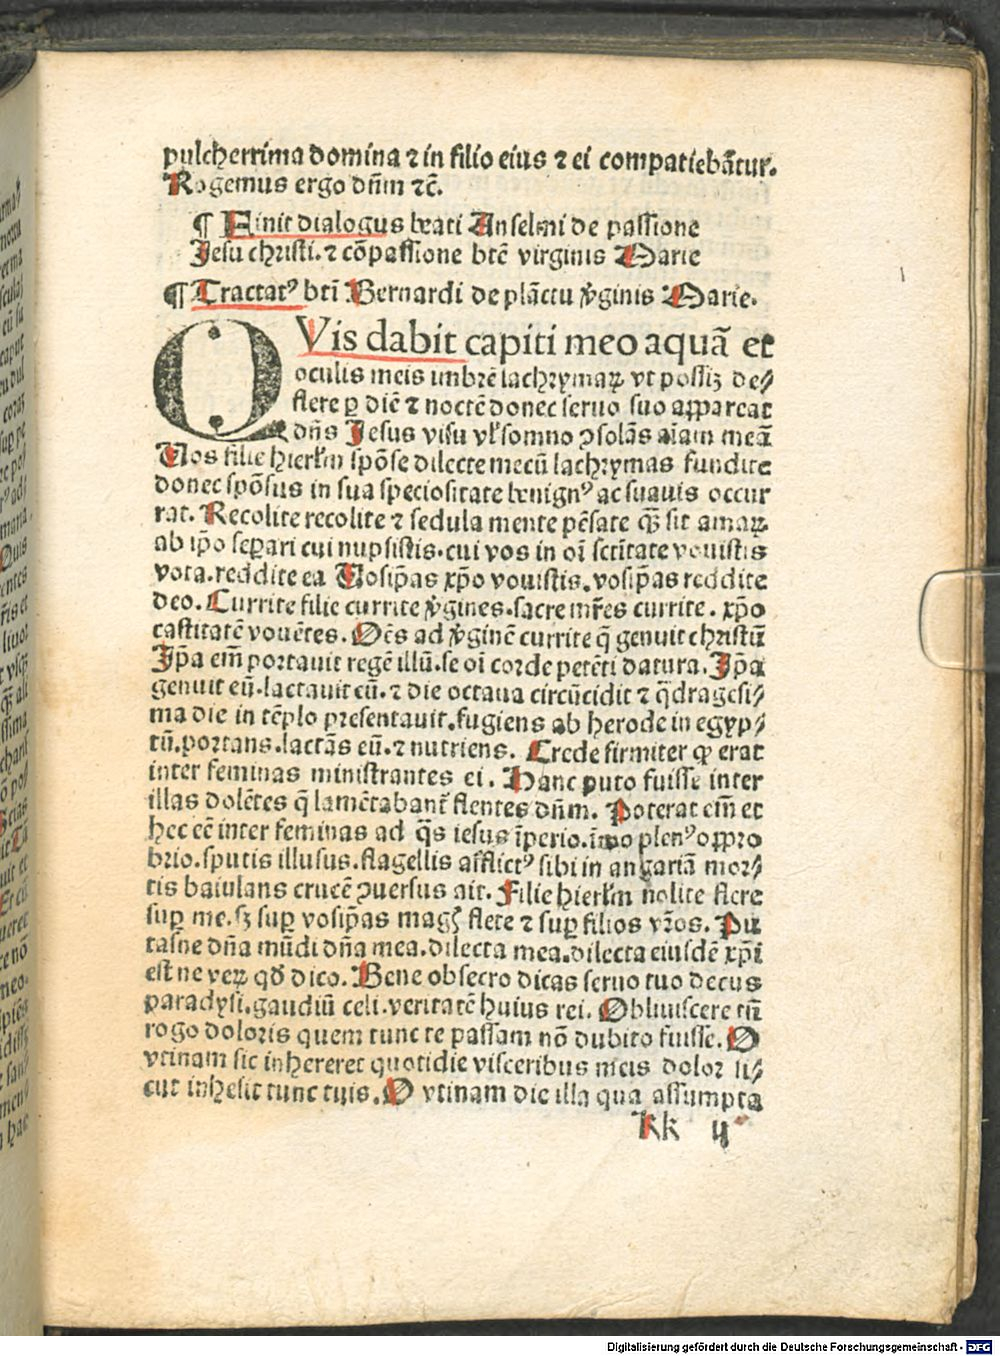 pulcherrima domina ⁊ in filio eius ⁊ ei compatiebãtur.
Rogemus ergo dñm ⁊c̃.
¶ Finit dialogus beati Anselmi de passione
Jesu christi. ⁊ cõpassione btẽ virginis Marie
¶ Tractatꝰ btĩ Bernardi de plãctu ỹginis Marie.
QVis dabit capiti meo aquã et
oculis meis imbrẽ lachrymaꝝ vt possiꝫ de⸗
flere ꝑ diẽ ⁊ noctẽ donec seruo suo appareat
dñs Jesus visu vl' somno ꝯsolãs aĩam meã
Vos filie hierl'm spõse dilecte mecũ lachrymas fundite
donec spõsus in sua speciositate benignꝰ ac suauis occur
rat. Recolite recolite ⁊ sedula mente pẽsate qꝫ̃ sit amaꝝ
ab ip̃o seꝑari cui nupsistis. cui vos in oĩ sctĩtate vouistis
vota. reddite ea Vosip̃as xp̃o vouistis. vosip̃as reddite
deo. Currite filie currite ỹgines. sacre mr̃es currite. xp̃o
castitatẽ vouẽtes. Oẽs ad ỹginẽ currite q̃ genuit christũ
Jp̃a em̃ portauit regẽ illũ. se oĩ corde petẽti datura. Jp̃a
genuit eũ. lactauit eũ. ⁊ die octaua circũcidit ⁊ q̃dragesi⸗
ma die in tẽplo presentauit. fugiens ab herode in egyp⸗
tũ. portans. lactãs eũ. ⁊ nutriens. Crede firmiter ꝙ erat
inter feminas ministrantes ei. Hanc puto fuisse inter
illas dolẽtes q̃ lamẽtabant̃ flentes dñm. Poterat em̃ et
hec eẽ inter feminas ad q̃s iesus ĩperio. ĩmo plenꝰ oppro
brio. sputis illusus. flagellis afflictꝰ sibi in angariã mor⸗
tis baiulans crucẽ ꝯuersus ait. Filie hierl'm nolite flere
suꝑ me. sꝫ suꝑ vosip̃as magꝭ flete ⁊ suꝑ filios vr̃os. Pu
tasne dña mũdi dña mea. dilecta mea. dilecta eiusdẽ xp̃i
est ne veꝝ qđ dico. Bene obsecro dicas seruo tuo decus
paradysi. gaudiũ celi. veritatẽ huius rei. Obliuiscere tñ
rogo doloris quem tunc te passam nõ dubito fuisse. O
vtinam sic inhereret quotidie visceribus meis dolor si⸗
cut inhesit tunc tuis. O vtinam die illa qua assumpta
kk ij
Digitalisierung gefördert durch die Deutsche Forschungsgemeinschaft - DFG